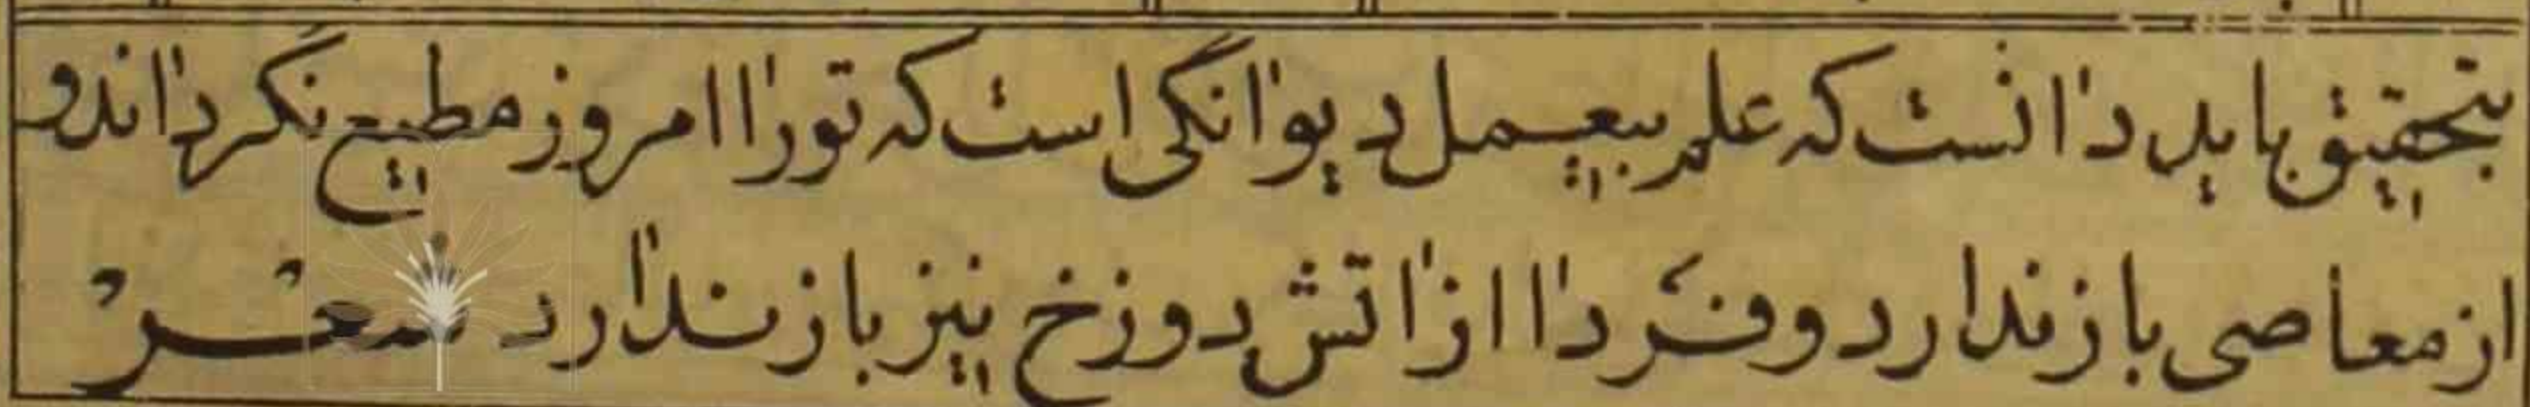 بتحقیق باید دانست که علم بیعمل دیوانگی است که تورا امروز مطیع نگرداند و
از معاصی باز ندارد و فردا از آتش دوزخ نیز باز ندارد شعر